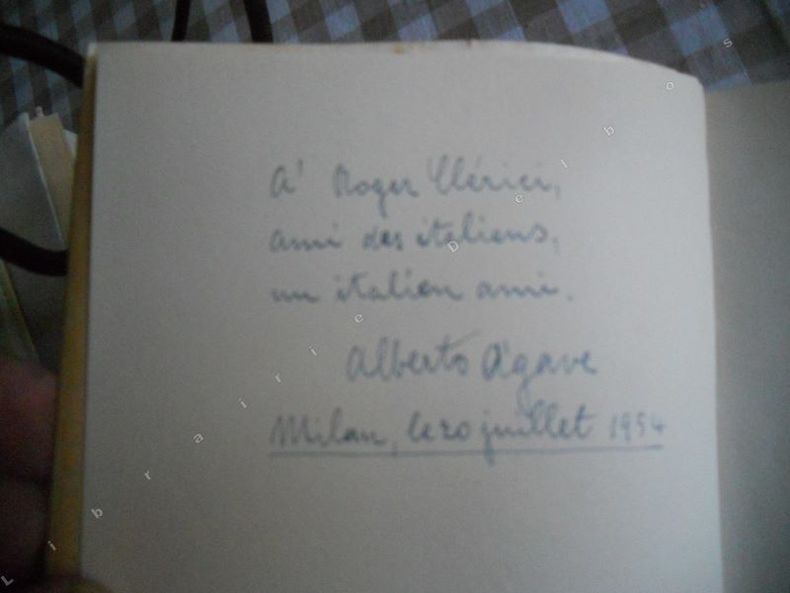 A' Roger Clérici,
ami des italiens,
un italien ami.
Alberto Àgave
Milan, le 20 juillet 1954
Librairie Delbos